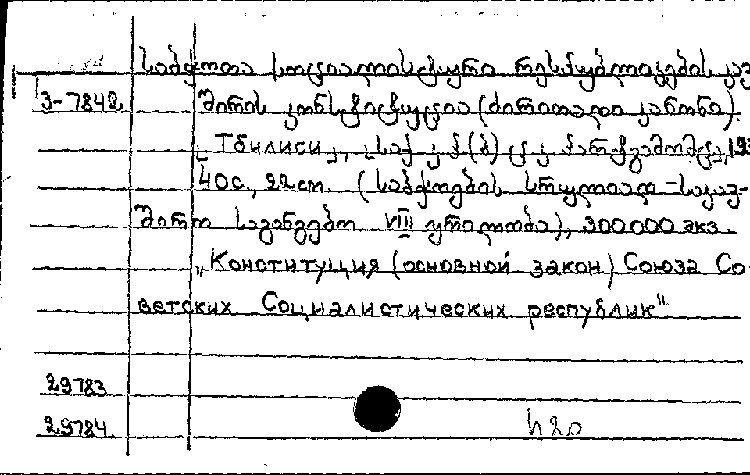 საბჭოთა სოციალისტური რესპუბლიკების კავ-
3-7842. შირის კონსტიტუცია (ძირითადი კანონი).
[Тбилиси], საქ კ პ(ბ) ც კ პარტგამომც., 193
40с., 22см. (საბჭოების სრულიად-საკავ-
შირო საგანგებო VIII ყრილობა), 300000 экз.
„Конституция (основной закон) Союза Со-
ветских Социалистических республик"
29783
29784